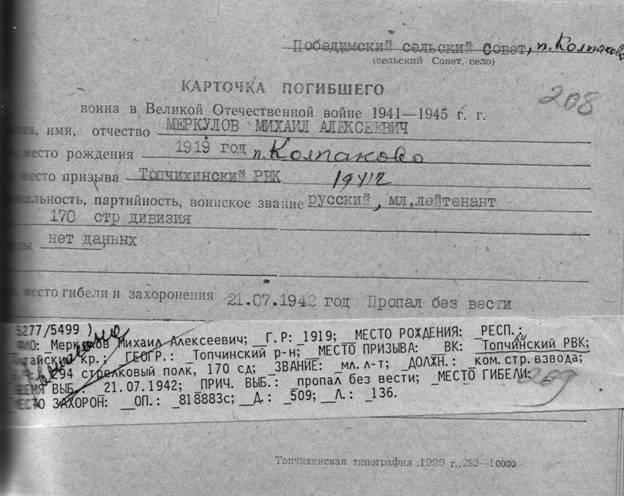 Победимский сельский Совет, п. Колпаково
(сельский Совет, село)
КАРТОЧКА ПОГИБШЕГО
208
воина в Великой Отечественной войне 1941—1945 г. г.
имя, отчество МЕРКУЛОВ МИХАИЛ АЛЕКСЕЕВИЧ
место рождения 1919 год п. Колпаково
место призыва Топчихинский РВК
партийность, воинское звание русский, мл,лейтенант
170 стр дивизия
нет данных
место гибели и захоронения 21.07.1942 год Пропал без вести
5277/5499 )
Меркулов Михаил Алексеевич; __Г.Р: _1919; __МЕСТО РОЖДЕНИЯ: __РЕСП.:
кр.; __ГЕОГР.: __Топчинский р-н; __МЕСТО ПРИЗЫВА: __ВК: _Топчинский РВК;
стрелковый полк, 170 сд; __ЗВАНИЕ: _мл.л-т; __ДОЛЖН.: _ком.стр.взвода;
ВЫБ.: _21.07.1942; __ПРИЧ. ВЫБ.: _пропал без вести; _МЕСТО ГИБЕЛИ:
209
ЗАХОРОН: __ОП.: _818883с; __Д.: _509; __Л.: _136.
Топчихинская типография, 1999 г., 282—10000